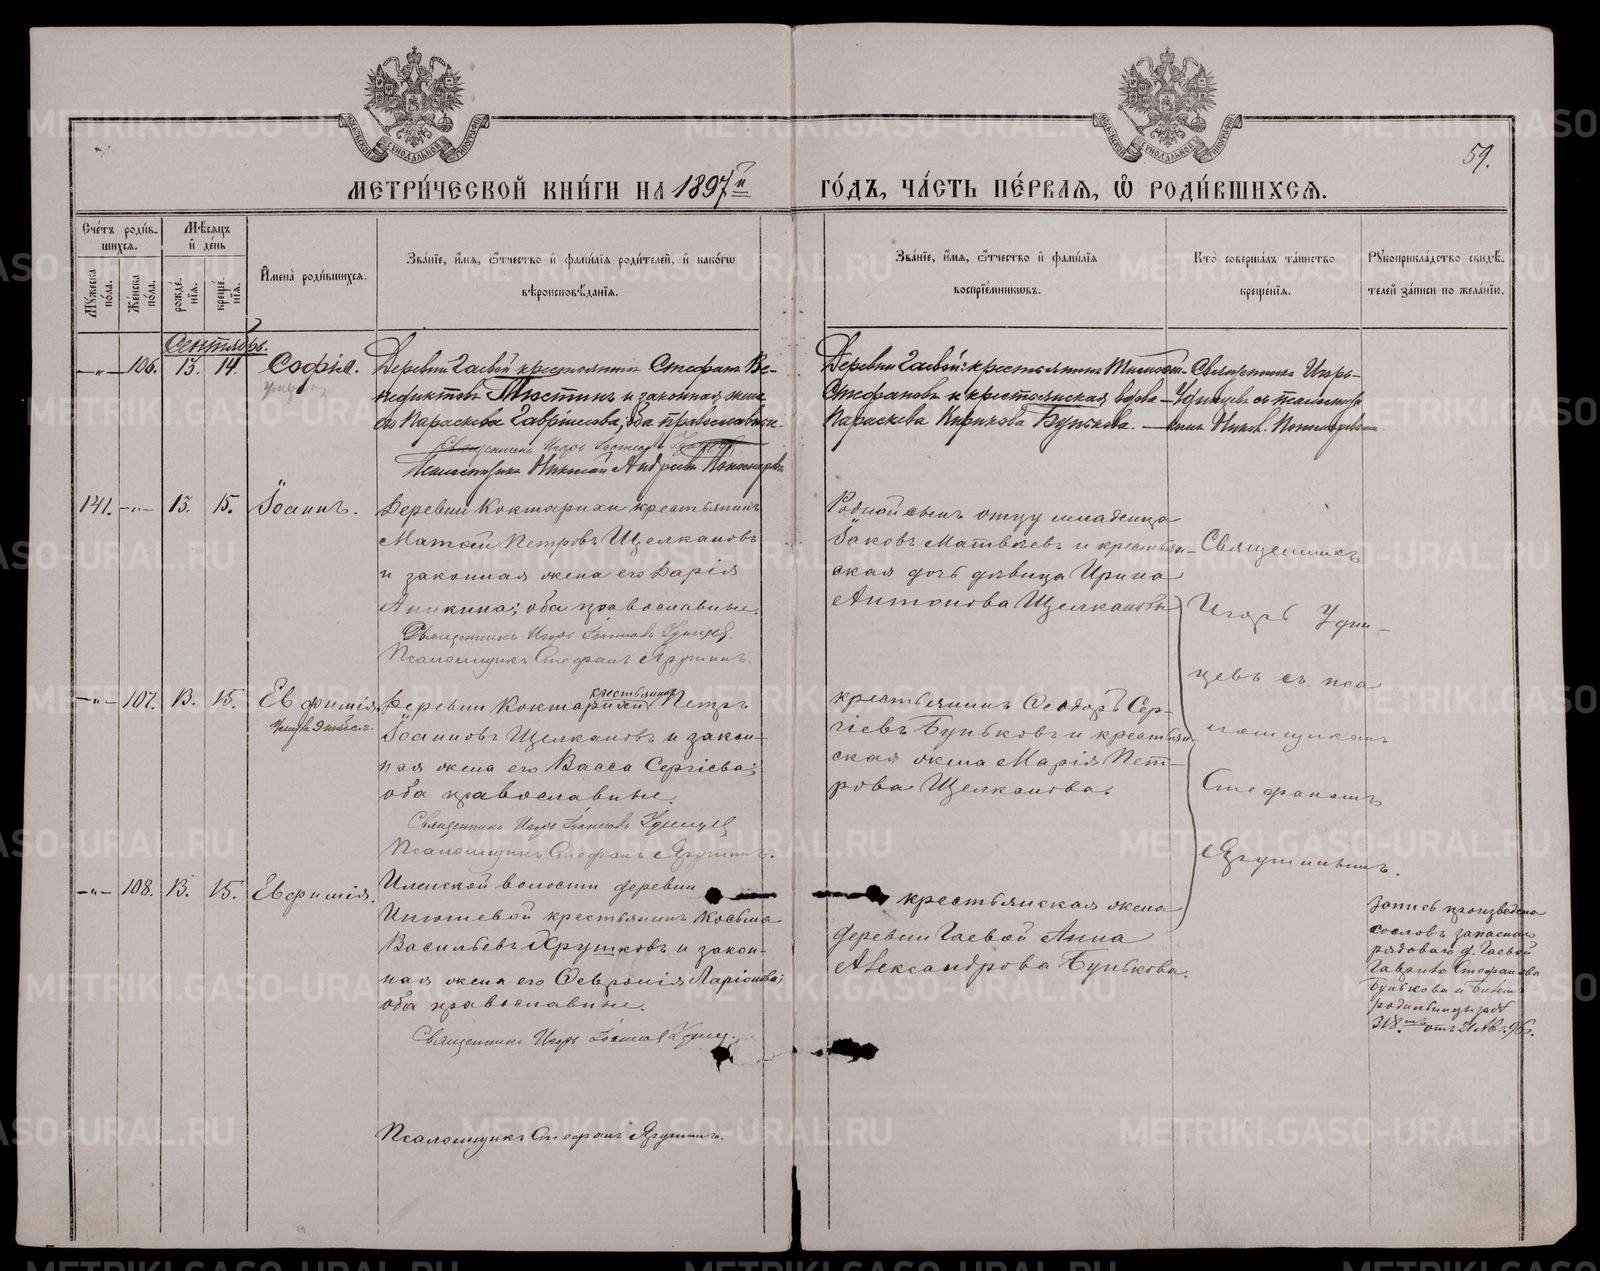 METRIKI.GASO-URAL.RU
59.
МЕТРИ́ЧЕСКОЙ КНИ́ГИ НА 1897й
ГО́ДЪ, ЧА́СТЬ ПЕ́РВАѦ, Ѿ РОДИ́ВШИХСѦ.
Сче́тъ роди́в-
шихсѧ.
Мѣ́сѧцъ
и҆ де́нь
Мꙋ́жеска по́ла.
Же́нска по́ла.
рожде́-
нїѧ.
креще́-
нїѧ.
И҆мена̀ роди́вшихсѧ.
Зва́нїе, и҆́мѧ, ѻ҆́тчество и҆ фами́лїѧ роди́телей, и҆ како́гѡ
вѣроисповѣ́данїѧ.
Зва́нїе, и҆́мѧ, ѻ҆́тчество и҆ фами́лїѧ
воспрїе́мникѡвъ.
Кто̀ соверша́лъ та́инство
креще́нїѧ.
Рꙋкоприкла́дство свидѣ́-
телей за́писи по жела́нїю.
Сентябрь.
—„— 106. 13. 14. Софія.
Деревни Гаевой крестьянинъ Стефанъ Ве-
недиктовъ Тюстинъ и законная жена
его Параскева Гавріилова; оба православные.
Священникъ Игорь Іоанновъ Удинцевъ
Псаломщикъ Николай Андреевъ Пономаревъ
Деревни Гаевой: крестьянинъ Тимоѳей
Стефановъ и крестьянская вдова
Параскева Кирикова Бунькова.
Священникъ Игорь
Удинцевъ съ псаломщи-
комъ Никол. Пономаревымъ
141. —„— 13. 15. Іоаннъ.
Деревни Коктарихи крестьянинъ
Матѳей Петровъ Щелкановъ
и законная жена его Дарія
Аникина; оба православные.
Священникъ Игорь Іоанновъ Удинцев.
Псаломщикъ Стефанъ Ярушинъ.
Родной сынъ отцу младенца
Іаковъ Матвѣевъ и крестьян-
ская дочь дѣвица Ирина
Антонова Щелканова
Священникъ
Игорь Удин-
цевъ съ пса
ломщикомъ
Стефаномъ
Ярушинымъ.
—„— 107. 13. 15. Евфимія.
Деревни Коктарихи крестьянинъ Петръ
Іоанновъ Щелкановъ и закон-
ная жена его Васса Сергіева;
оба православные.
Священникъ Игорь Іоанновъ Удинцев
Псаломщикъ Стефанъ Ярушинъ.
крестьянинъ Ѳеодоръ Сер-
гіевъ Буньковъ и крестьян-
ская жена Марія Пет-
рова Щелканова.
—„— 108. 13. 15. Евфимія.
Иленской волости деревни
крестьянинъ Косьма
Васильевъ Хрушковъ и закон-
ная жена его Ѳевронія Ларіонова;
оба православные.
Священникъ Игорь Іоанновъ Удинц.
Псаломщикъ Стефанъ Ярушинъ.
крестьянская жена
деревни Гаевой Анна
Александрова Бунькова.
Запись произведена
со словъ запаснаго
рядоваго д. Гаевой
Гаврила Стефанова
Бунькова и билета
родильницы за №
318. отъ 21 Авг. 96.